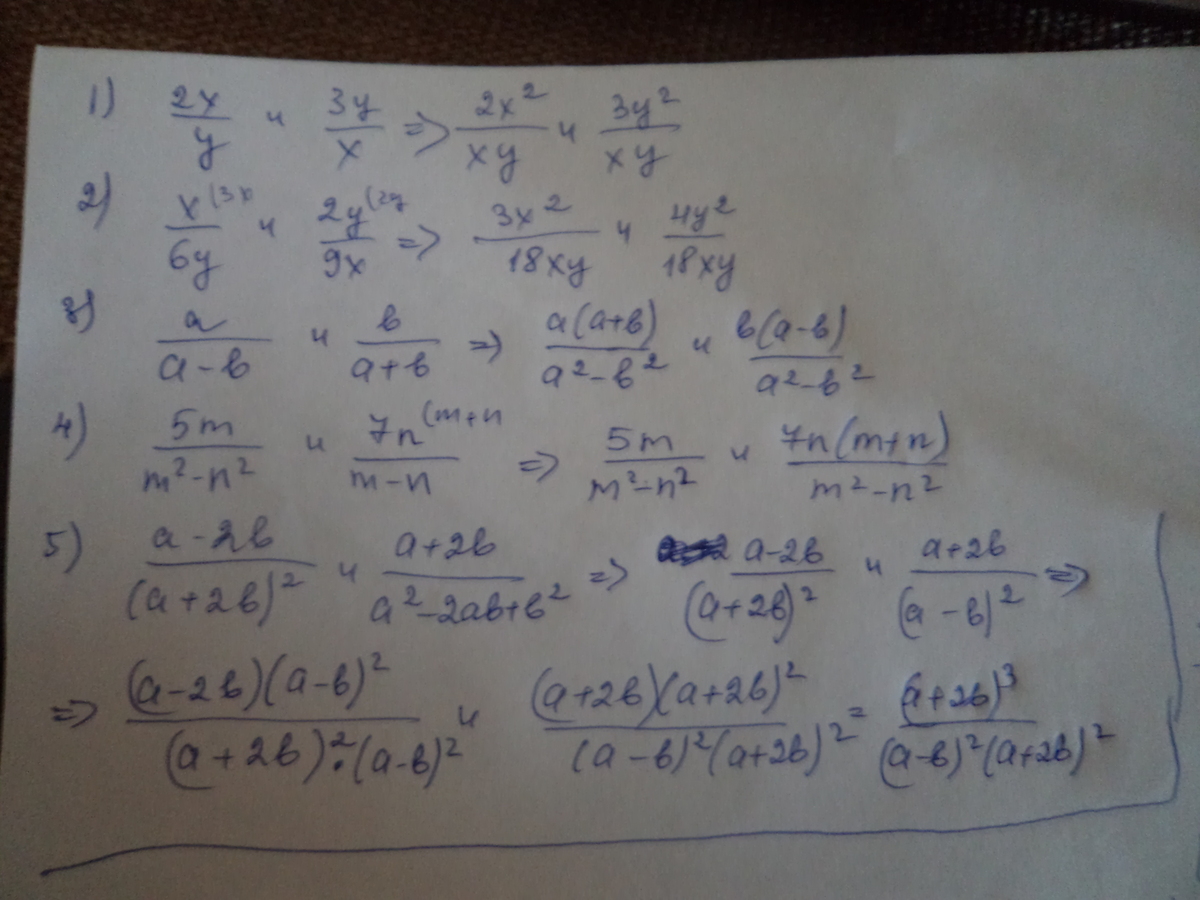 1) 2x/y и 3y/x => 2x²/xy и 3y²/xy
2) x(3x/6y и 2y(2y/9x => 3x²/18xy и 4y²/18xy
3) a/a-в и в/a+в => a(a+в)/a²-в² и в(a-в)/a²-в²
4) 5m/m²-n² и 7n(m+n/m-n => 5m/m²-n² и 7n(m+n)/m²-n²
5) a-2в/(a+2в)² и a+2в/a²-2aв+в² => a-2в/(a+2в)² и a+2в/(a-в)² =>
=> (a-2в)(a-в)²/(a+2в)²·(a-в)² и (a+2в)(a+2в)²/(a-в)²(a+2в)² = (a+2в)³/(a-в)²(a+2в)²